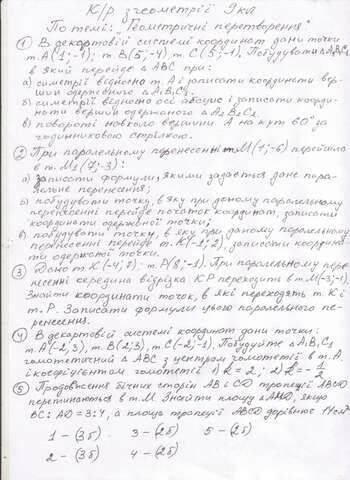 К/р з геометрії 9 кл
По темі: „Геометричні перетворення"
① В декартовій системі координат дани точки
т. А(1;-1); т. В(5;-4) т. С(3;-1). Побудувати ΔА₁В₁С₁
в який перейде ΔАВС при:
а) симетрії відносно т. А і записати координати вер-
шин одержаного ΔА₁В₁С₁.
б) симетрії відносно осі абсцис і записати коорди-
нати вершин одержаного ΔА₂В₂С₂.
в) повороті навколо вершини А на кут 60° за
годинниковою стрілкою.
② При паралельному перенесенні т. М(1;-6) перейшла
в т. М₁(7;-3):
а) Записати формули, якими задається дане пара-
лельне перенесення;
б) побудувати точку, в яку при даному паралельному
перенесенні перейде початок координат, записати
координати одержаної точки;
в) побудувати точку, в яку при даному паралельному
перенесенні перейде т. К(-1;2), записати координа-
ти одержаної точки.
③ Дано т. К(-4;7) т. Р(8;-1). При паралельному пере-
несенні середина відрізка КР переходить в т. М(-3;-1).
Знайти координати точок, в які переходять т. К і
т. Р. Записати формули цього паралельного пе-
ренесення.
④ В декартовій системі координат дани точки:
т. А(-2;3), т. В(2;3), т. С(-2;-1). Побудуйте ΔА₁В₁С₁
гомотетичний ΔАВС з центром гомотетії в т. А
і коефіцієнтом гомотетії 1) k=2; 2) k=-1/2
⑤ Продовження бічних сторін АВ і СD трапеції АВСD
перетинаються в т. М. Знайти площу ΔАМD, якщо
ВС:АD=3:4, а площа трапеції АВСD дорівнює 14см²
1-(3б) 3-(2б) 5-(2б)
2-(3б) 4-(2б)